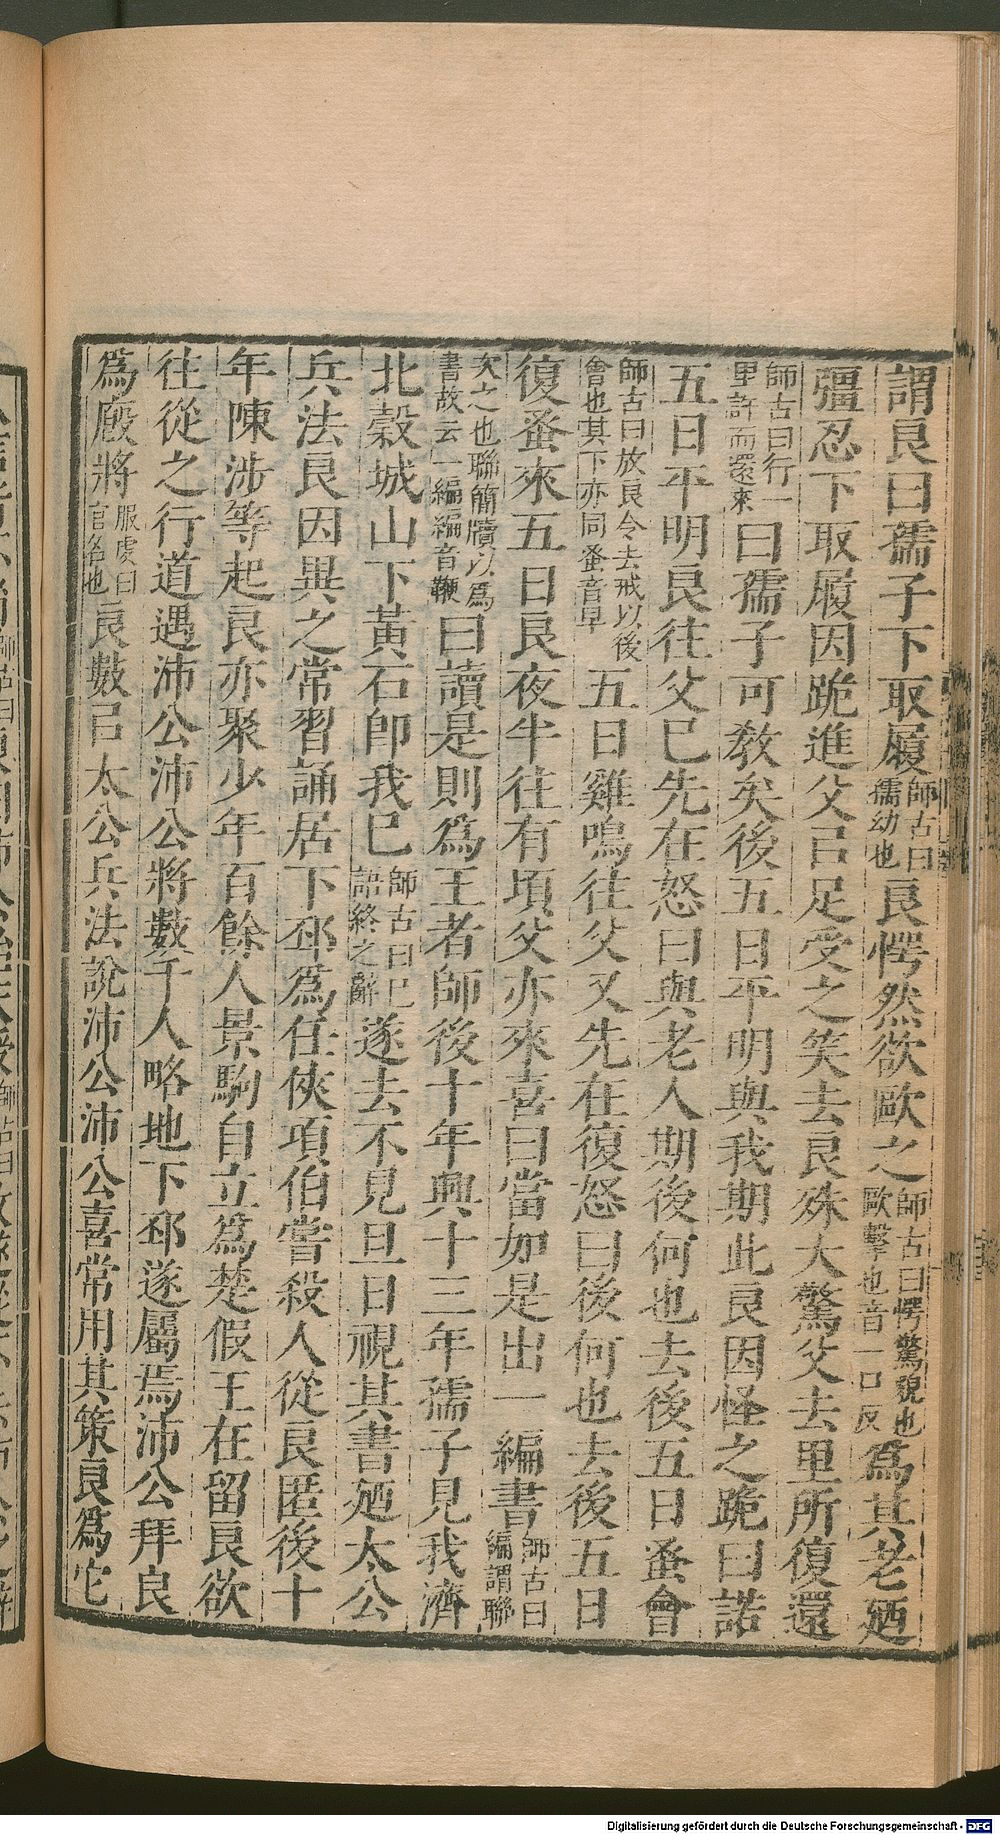 謂良曰孺子下取履師古曰孺幼也良愕然欲歐之師古曰愕驚貌也歐擊也音一口反爲其老廼
彊忍下取履因跪進父㠯足受之笑去良殊大驚父去里所復還
師古曰行一里許而還來曰孺子可敎矣後五日平明與我期此良因怪之跪曰諾
五日平明良往父已先在怒曰與老人期後何也去後五日蚤會
師古曰放良令去戒以後會也其下亦同蚤音早五日雞鳴往父又先在復怒曰後何也去後五日
復蚤來五日良夜半往有頃父亦來喜曰當如是出一編書師古曰編謂聯
次之也聯簡牘以爲書故云一編編音鞭曰讀是則爲王者師後十年興十三年孺子見我濟
北穀城山下黃石卽我已師古曰已語終之辭遂去不見旦日視其書廼太公
兵法良因異之常習誦居下邳爲任俠項伯嘗殺人從良匿後十
年陳涉等起良亦聚少年百餘人景駒自立爲楚假王在留良欲
往從之行道遇沛公沛公將數千人略地下邳遂屬焉沛公拜良
爲廄將服虔曰官名也良數㠯太公兵法說沛公沛公喜常用其策良爲它
Digitalisierung gefördert durch die Deutsche Forschungsgemeinschaft - DFG